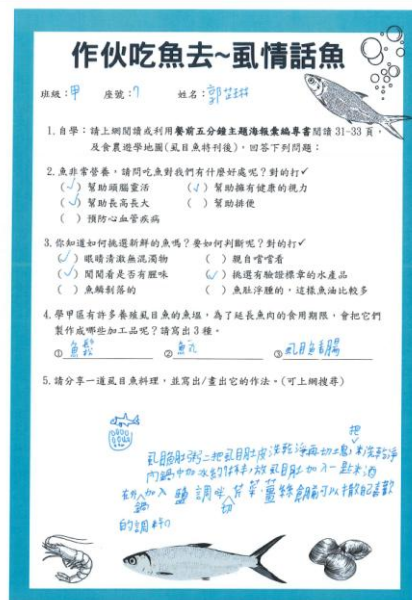 作伙吃魚去~虱情話魚
班級：甲 座號：7 姓名：郭
1.自學：請上網閱讀或利用餐前五分鐘主題海報彙編專書閱讀31-33頁，
及食農遊學地圖(虱目魚特刊後)，回答下列問題：
2.魚非常營養，請問吃魚對我們有什麼好處呢？對的打✓
(✓) 幫助頭腦靈活 (✓) 幫助擁有健康的視力
(✓) 幫助長高長大 ( ) 幫助排便
( ) 預防心血管疾病
3.你知道如何挑選新鮮的魚嗎？要如何判斷呢？對的打✓
(✓) 眼睛清澈無混濁物 ( ) 親自嚐嚐看
(✓) 聞聞看是否有腥味 (✓) 挑選有驗證標章的水產品
( ) 魚鱗剝落的 ( ) 魚肚浮腫的，這樣魚油比較多
4.學甲區有許多養殖虱目魚的魚塭，為了延長魚肉的食用期限，會把它們
製作成哪些加工品呢？請寫出3種。
① 魚鬆 ② 魚丸 ③ 虱目魚香腸
5.請分享一道虱目魚料理，並寫出/畫出它的作法。(可上網搜尋)
把
虱目魚肚粥：把虱目肚皮洗乾淨再切土塊，米洗乾淨
內鍋中加水 放虱目肚加入一點米酒
在外加入 鹽 調味 芹菜、薑絲 可以 喜歡
鍋 切
的調料